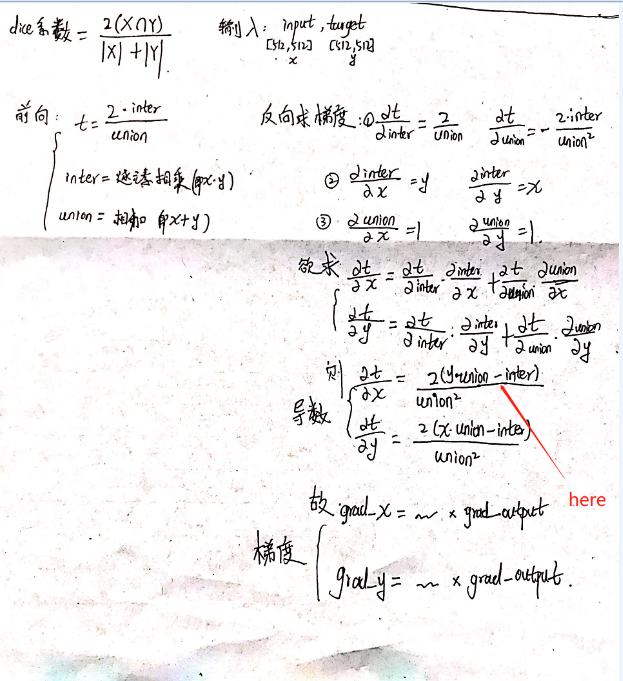 dice系数 = 2(X∩Y) / |X|+|Y|
输入: input, target
[512,512] [512,512]
x y
前向: t = 2·inter / union
inter = 逐谱相乘(即x·y)
union = 相加 即x+y)
反向求梯度: ① ∂t/∂inter = 2/union ∂t/∂union = - 2·inter/union²
② ∂inter/∂x = y ∂inter/∂y = x
③ ∂union/∂x = 1 ∂union/∂y = 1.
欲求 ∂t/∂x = ∂t/∂inter · ∂inter/∂x + ∂t/∂union · ∂union/∂x
∂t/∂y = ∂t/∂inter · ∂inter/∂y + ∂t/∂union · ∂union/∂y
则 ∂t/∂x = 2(y·union - inter) / union²
导数
∂t/∂y = 2(x·union - inter) / union²
here
故 grad_x = ~ × grad_output
梯度
grad_y = ~ × grad_output.